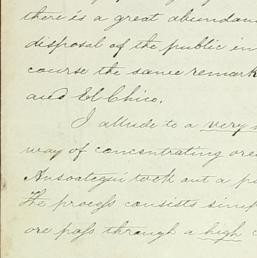 there is a great abundan
disposal of the public in
course the same remark
and El Chico.
I allude to a very s
way of concentrating ore
Ansoategui took out a pa
The process consists simp
ore pass through a high c